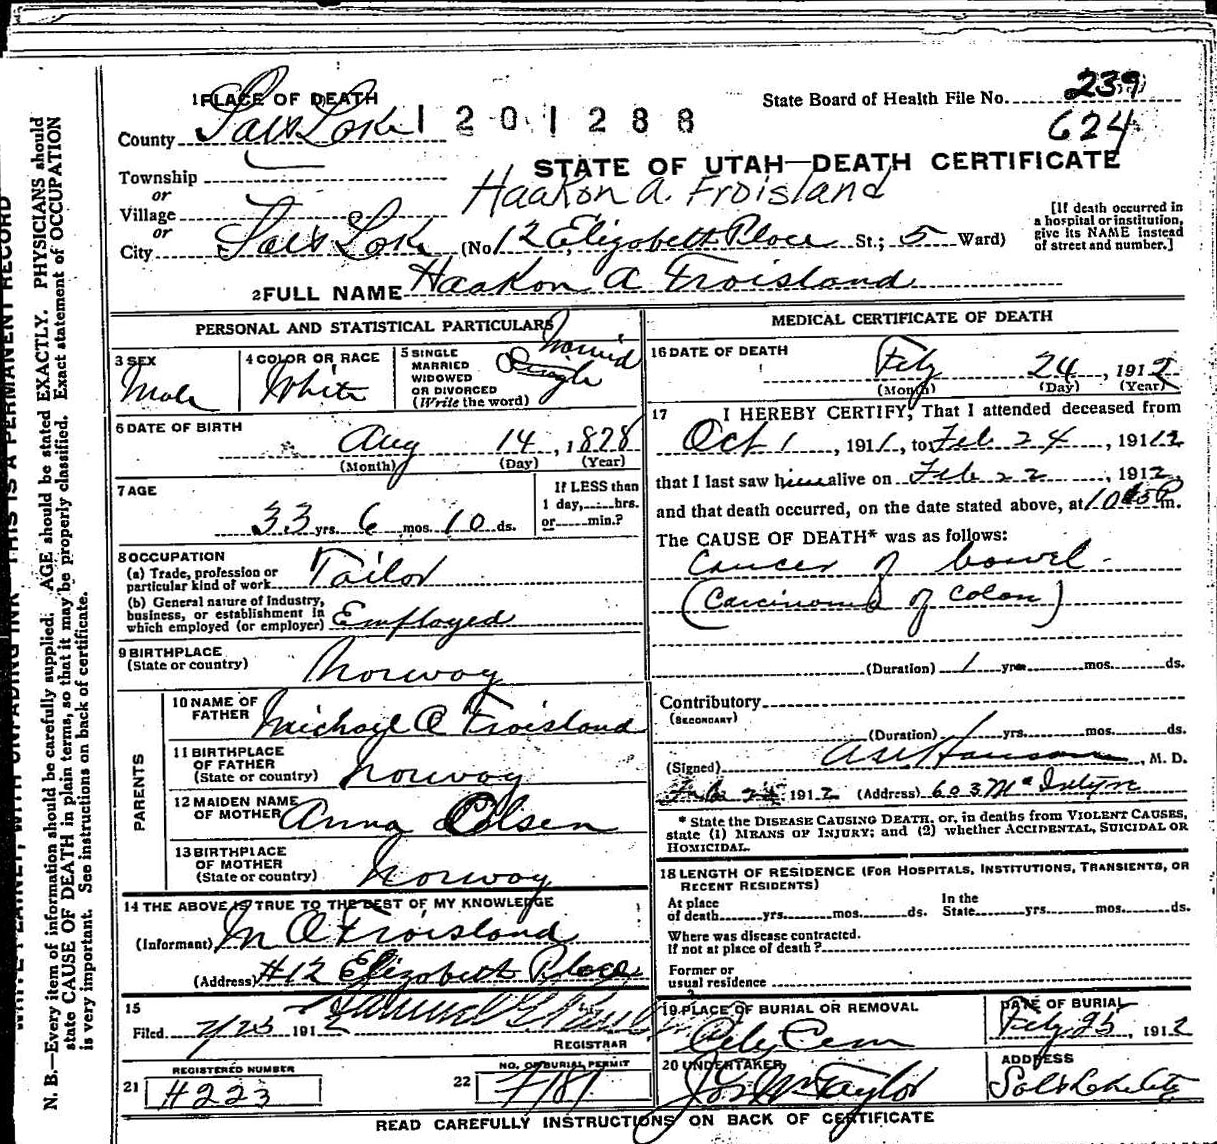 WRITE PLAINLY, WITH UNFADING INK—THIS IS A PERMANENT RECORD
N. B.—Every item of information should be carefully supplied. AGE should be stated EXACTLY. PHYSICIANS should
state CAUSE OF DEATH in plain terms, so that it may be properly classified. Exact statement of OCCUPATION
is very important. See instructions on back of certificate.
1 PLACE OF DEATH
State Board of Health File No. 239
624
County Salt Lake 1201288
STATE OF UTAH—DEATH CERTIFICATE
Township
or
Haakon A. Froisland
Village
or
City Salt Lake (No 12 Elizabeth Place St.; 5 Ward)
[If death occurred in
a hospital or institution,
give its NAME instead
of street and number.]
2 FULL NAME Haakon A Froisland
PERSONAL AND STATISTICAL PARTICULARS
3 SEX
Male
4 COLOR OR RACE
White
5 SINGLE
MARRIED
WIDOWED
OR DIVORCED
(Write the word)
Married
Single
6 DATE OF BIRTH
Aug 14, 1878
(Month) (Day) (Year)
7 AGE
33 yrs. 6 mos. 10 ds.
If LESS than
1 day, hrs.
or min.?
8 OCCUPATION
(a) Trade, profession or
particular kind of work Tailor
(b) General nature of Industry,
business, or establishment in
which employed (or employer) Employed
9 BIRTHPLACE
(State or country) Norway
PARENTS
10 NAME OF
FATHER Michael O Froisland
11 BIRTHPLACE
OF FATHER
(State or country) Norway
12 MAIDEN NAME
OF MOTHER Anna Olsen
13 BIRTHPLACE
OF MOTHER
(State or country) Norway
14 THE ABOVE IS TRUE TO THE BEST OF MY KNOWLEDGE
(Informant) M O Froisland
(Address) #12 Elizabeth Place
15
Filed 2/25 1912
REGISTRAR
21 REGISTERED NUMBER
#223
22 NO. OF BURIAL PERMIT
MEDICAL CERTIFICATE OF DEATH
16 DATE OF DEATH
Feby 24, 1912
(Month) (Day) (Year)
17 I HEREBY CERTIFY, That I attended deceased from
Oct 1, 1911, to Feb 24, 191 12
that I last saw him alive on Feb 22, 1912
and that death occurred, on the date stated above, at m.
The CAUSE OF DEATH* was as follows:
Cancer of bowel
(Carcinoma of Colon)
(Duration) 1 yrs. mos. ds.
Contributory
(SECONDARY)
(Duration) yrs. mos. ds.
(Signed) Hanson, M. D.
1912 (Address) 603 McIntyre
* State the DISEASE CAUSING DEATH, or, in deaths from VIOLENT CAUSES,
state (1) MEANS OF INJURY; and (2) whether ACCIDENTAL, SUICIDAL OR
HOMICIDAL.
18 LENGTH OF RESIDENCE (FOR HOSPITALS, INSTITUTIONS, TRANSIENTS, OR
RECENT RESIDENTS)
At place
of death yrs. mos. ds.
In the
State yrs. mos. ds.
Where was disease contracted.
If not at place of death?
Former or
usual residence
19 PLACE OF BURIAL OR REMOVAL
City Cem
DATE OF BURIAL
Feby 25, 1912
20 UNDERTAKER
Jos Wm Taylor
ADDRESS
Salt Lake City
READ CAREFULLY INSTRUCTIONS ON BACK OF CERTIFICATE